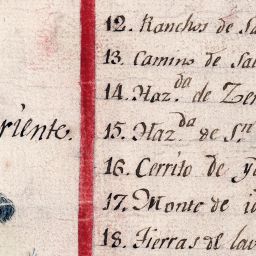 12. Ranchos de Sa
13. Camino de Sal
14. Haz.da de Zer
riente.
15. Haz.da de S.n
16. Cerrito de
17. Monte de
18. Tierras dl lav